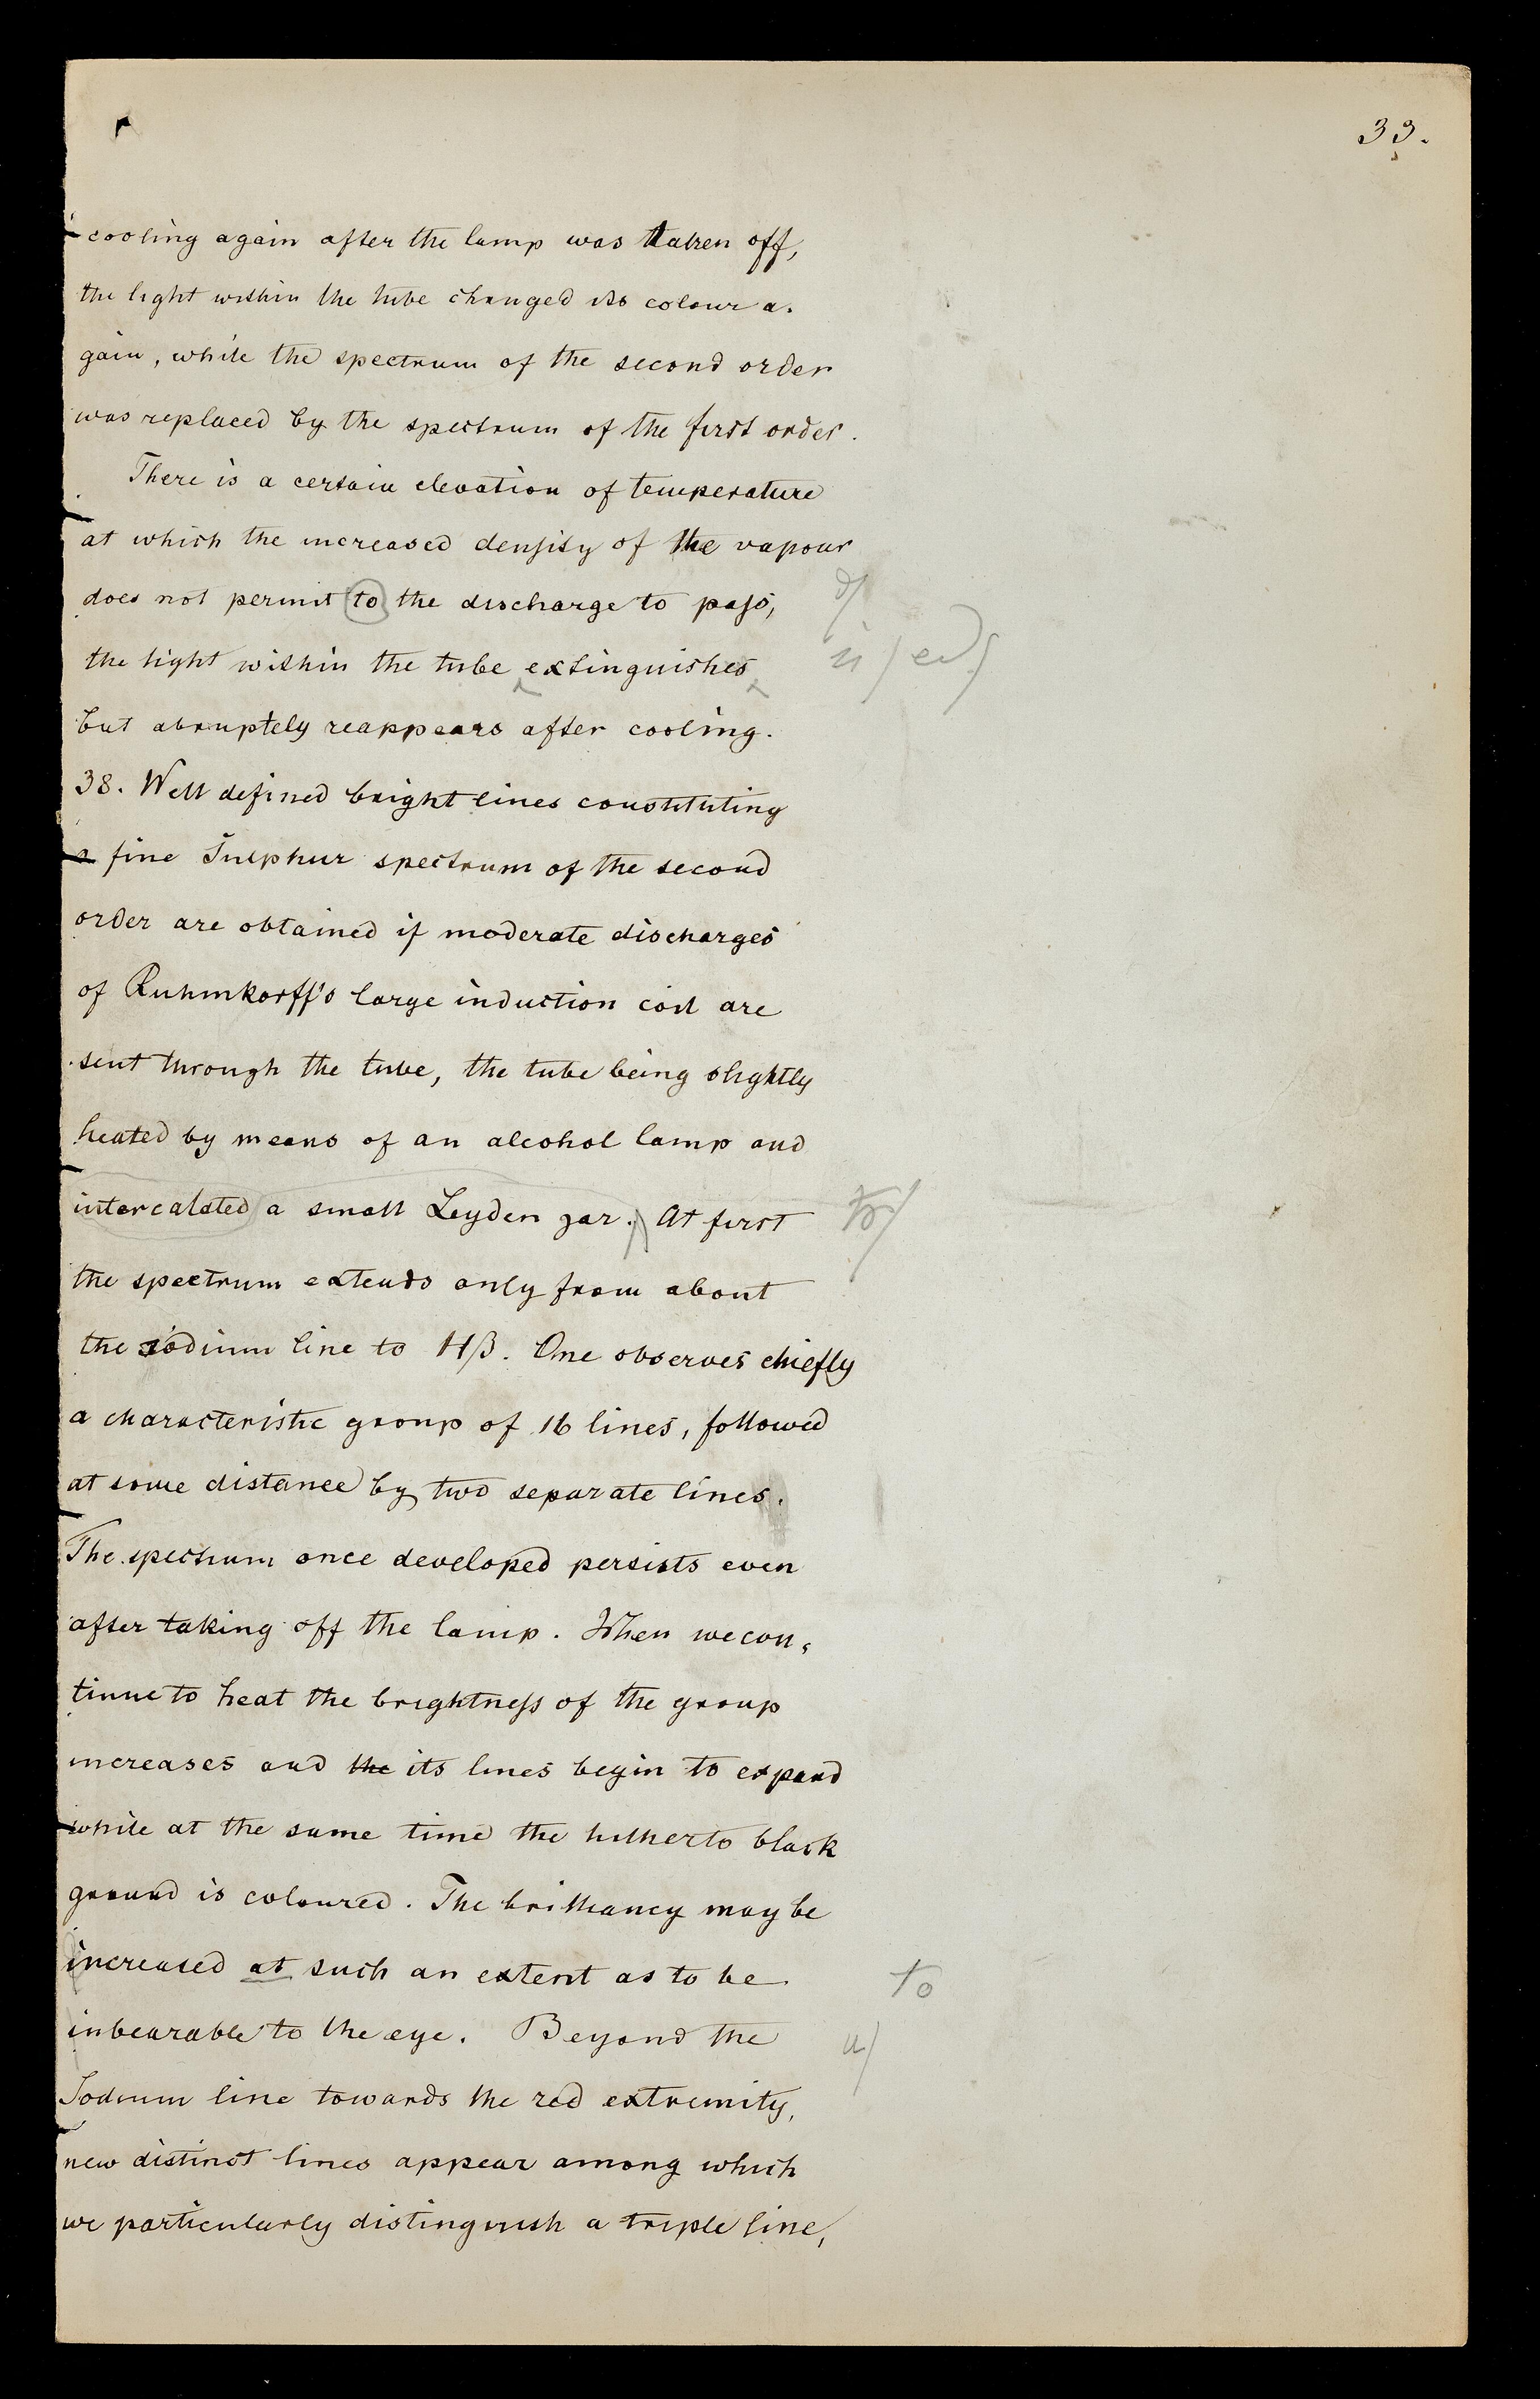 33.
cooling again after the lamp was taken off,
the light within the tube changed its colour a-
gain, while the spectrum of the second order
was replaced by the spectrum of the first order.
There is a certain elevation of temperature
at which the increased density of the vapour
does not permit to the discharge to pass,
the light within the tube extinguishes
is/ ed/
but abruptely reappears after cooling.
38. Well defined bright lines constituting
a fine Sulphur spectrum of the second
order are obtained if moderate discharges
of Ruhmkorff's large induction coil are
sent through the tube, the tube being slightly
heated by means of an alcohol lamp and
intercalated a small Leyden jar. At first
tr/
the spectrum extends only from about
the sodium line to Hβ. One observes chiefly
a characteristic group of 16 lines, followed
at some distance by two separate lines.
The spectrum once developed persists even
after taking off the lamp. When we con-
tinue to heat the brightness of the group
increases and the its lines begin to expand
while at the same time the hitherto black
ground is coloured. The brilliancy may be
increased at such an extent as to be
to
inbearable to the eye. Beyond the
u/
Sodium line towards the red extremity,
new distinct lines appear among which
we particularly distinguish a triple line,